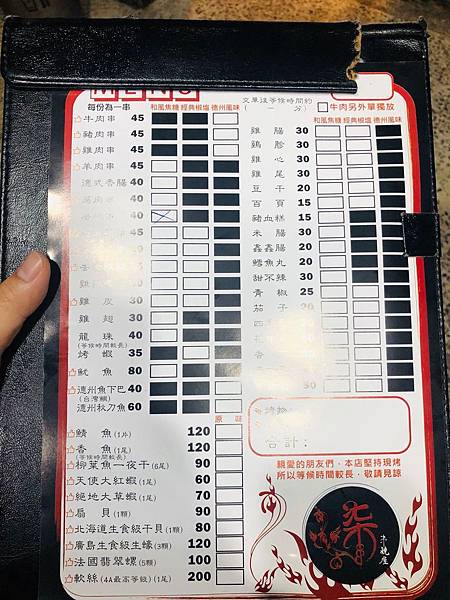 MENU
交單後等候時間約
(一 分)
牛肉另外單獨放
每份為一串
和風焦糖 經典椒塩 德州風味
牛肉串 45
豬肉串 45
雞肉串 45
羊肉串 45
德式香腸 40
40
40
30
雞皮 30
雞翅 30
龍珠 40
(等候時間較長)
烤蝦 35
魷魚 80
德州魚下巴 40
(台灣鯛)
德州秋刀魚 60
原味
鯖魚(1片) 120
香魚(1尾) 120
(等候時間較長)
柳葉魚一夜干(6尾) 90
天使大紅蝦(1尾) 60
絕地大草蝦(1尾) 70
扇貝(1顆) 90
北海道生食級干貝(1顆) 80
廣島生食級生蠔(3顆) 120
法國翡翠螺(5顆) 100
軟絲(4A最高等級)(1尾) 200
和風焦糖 經典椒塩 德州風味
雞腸 30
雞胗 30
雞心 30
雞尾 30
豆干 20
百頁 15
豬血糕 15
米腸 20
鑫鑫腸 20
鱈魚丸 20
甜不辣 30
青椒 25
茄子
四
合計:
親愛的朋友們,本店堅持現烤
所以等候時間較長,敬請見諒
柒
串燒屋